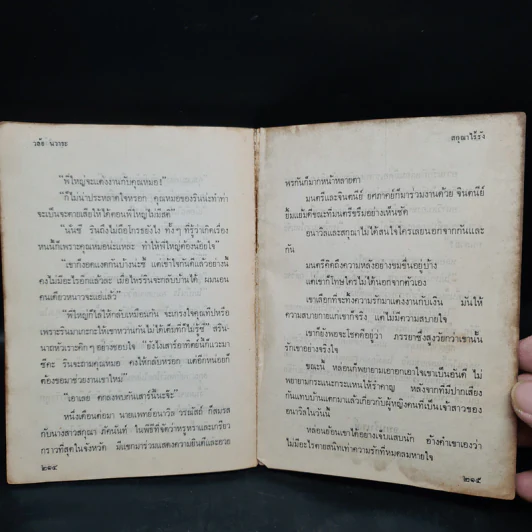 วลัย นวาระ
"พี่ใหญ่จะแต่งงานกับคุณหมอ!
"ก็ไม่น่าประหลาดใจหรอก คุณหมอของรินน่ะทำท่า
จะเป็นจะตายเสียให้ได้ตอนพี่ใหญ่ไม่มีสติ"
"นั่นซี รินถึงไม่ถือโกรธยังไง ทั้งๆ ที่รู้ว่าเกิดเรื่อง
หนนี้ก็เพราะคุณหมอน่ะแหละ ทำให้พี่ใหญ่ต้องน้อยใจ"
"เขาก็อดแตกกันบ้างน่ะซี แต่เข้าใจกันดีแล้วอย่างนี้
คงไม่มีอะไรอีกแล้วล่ะ เมื่อไหร่รินจะกลับบ้านได้ ผมนอน
คนเดียวหนาวจะแย่แล้ว"
"พี่ใหญ่ก็ไล่ให้กลับเหมือนกัน จะเกรงใจคุณทีปหรือ
เพราะรินมาเกะกะให้เขาหวานกันไม่ได้เต็มที่ก็ไม่รู้ซี" สริน-
นาถหัวเราะคิกๆ อย่างชอบใจ "ยังไงเสาร์อาทิตย์นี้ก็แวะมา
ซีคะ รินจะถามคุณหมอ คงให้กลับหรอก แต่อีกหน่อยก็
ต้องขอมาช่วยงานเขาใหม่"
"เอาเลย ตกลงพบกันเสาร์นี้นะจ๊ะ"
หนึ่งเดือนต่อมา นายแพทย์อนาวิล วรณิสถ์ ก็สมรส
กับนางสาวสกุณา ภัคนันท์ ในพิธีที่จัดว่าหรูหราและเกรียว
กราวที่สุดในจังหวัด มีแขกมาร่วมแสดงความยินดีและอวย
๒๑๔
สกุณาไร้รัง
พรกันก็มากหน้าหลายตา
มนตรีและจินตนีย์ อุตส่าห์ก็มาร่วมงานด้วย จินตนีย์
ยิ้มแย้มดีขณะที่มนตรีขรึมอย่างเห็นชัด
อนาวิลและสกุณาไม่ได้สนใจใครเลยนอกจากกันและ
กัน
มนตรีคิดถึงความหลังอย่างขมขื่นอยู่บ้าง
แต่เขาก็โทษใครไม่ได้นอกจากตัวเอง
เขาเลือกที่จะทิ้งความรักมาแต่งกับเงิน มันให้
ความสบายกายแก่เขาก็จริง แต่ไม่มีความสบายใจ
เขาก็ยังพอจะโชคดีอยู่ว่า ภรรยาซึ่งสูงวัยกว่าเขานั้น
รักเขาอย่างจริงใจ
ขณะนี้ หล่อนก็พยายามเอาอกเอาใจเขาเป็นอันดี ไม่
พยายามกระแนะกระแหนให้รำคาญ หลังจากที่มีปากเสียง
กันแทบบ้านแตกมาแล้วเกี่ยวกับผู้หญิงคนที่เป็นเจ้าสาวของ
อนาวิลในวันนี้
หล่อนย้อนเขาได้อย่างเจ็บแสบนัก อ้างคำเขาเองว่า
ไม่มีอะไรตายสนิทเท่าความรักที่หมดลมหายใจ
๒๑๕